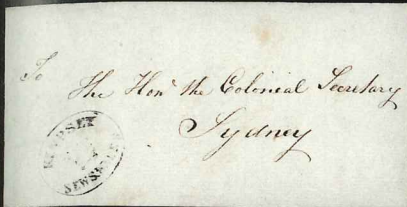 To
The Hon. the Colonial Secretary
Sydney
KEMPSEY